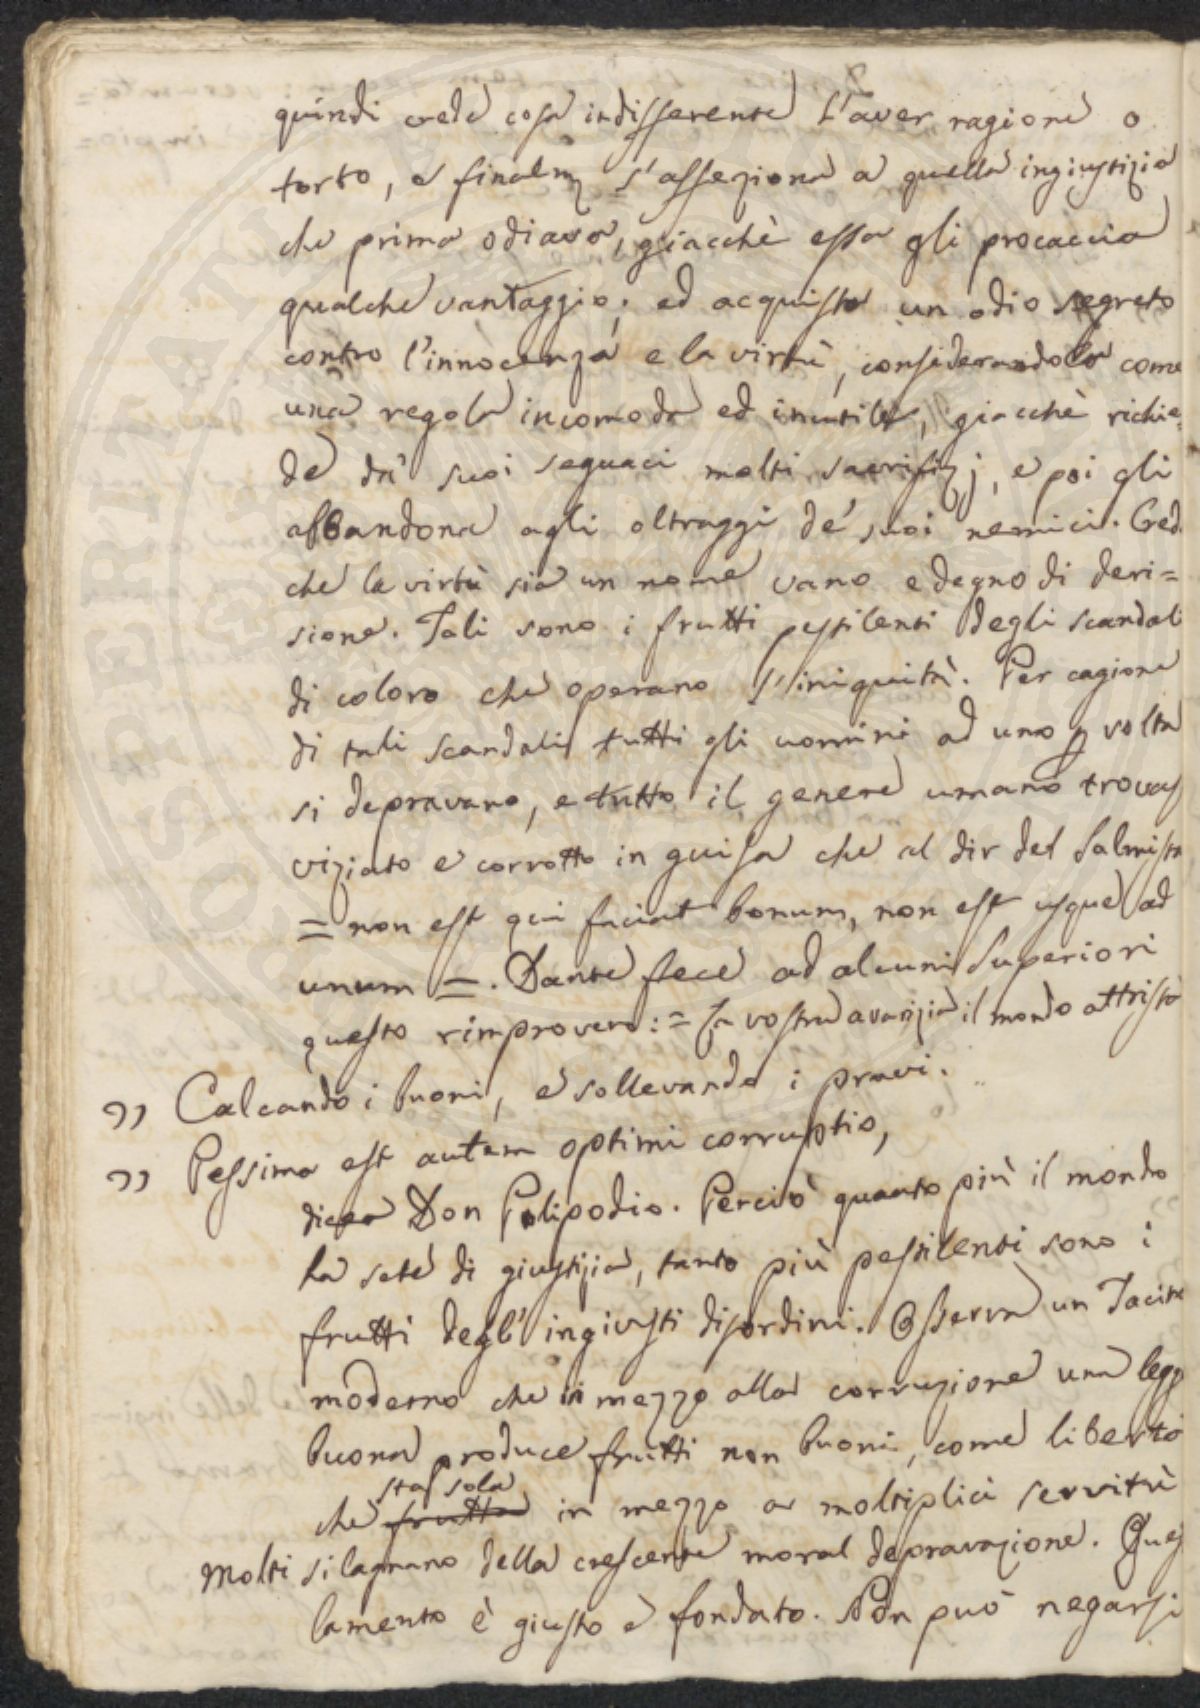 quindi crede cosa indifferente l'aver ragione o
torto, e finalm. s'affeziona a quella ingiustizia
che prima odiava, giacchè essa gli procaccia
qualche vantaggio; ed acquista un odio segreto
contro l'innocenza e la virtù, considerandola come
una regola incomoda ed inutile, giacchè richie=
de da' suoi seguaci molti sacrifizj, e poi gli
abbandona agli oltraggi de' suoi nemici. Cred.
che la virtù sia un nome vano e degno di deri=
sione. Tali sono i frutti pestilenti degli scandali
di coloro che operano l'iniquità. Per cagione
di tali scandali tutti gli uomini ad uno p volta
si depravano, e tutto il genere umano trovasi
viziato e corrotto in guisa che al dir del Salmista
= non est qui faciat bonum, non est usque ad
unum =. Dante fece ad alcuni Superiori
questo rimprovero: = La vostra avarizia il mondo attrista
" Calcando i buoni, e sollevando i pravi.
" Pessima est autem optimi corruptio,
dicea Don Polipodio. Perciò quanto più il mondo
ha sete di giustizia, tanto più pestilenti sono i
frutti degl' ingiusti disordini. Osserva un Tacito
moderno che in mezzo alla corruzione una legge
buona produce frutti non buoni, come libertà
stas sola
che frutta in mezzo a moltiplici servitù
Molti si lagnano della crescente moral depravazione. Ques
lamento è giusto e fondato. Non può negarsi